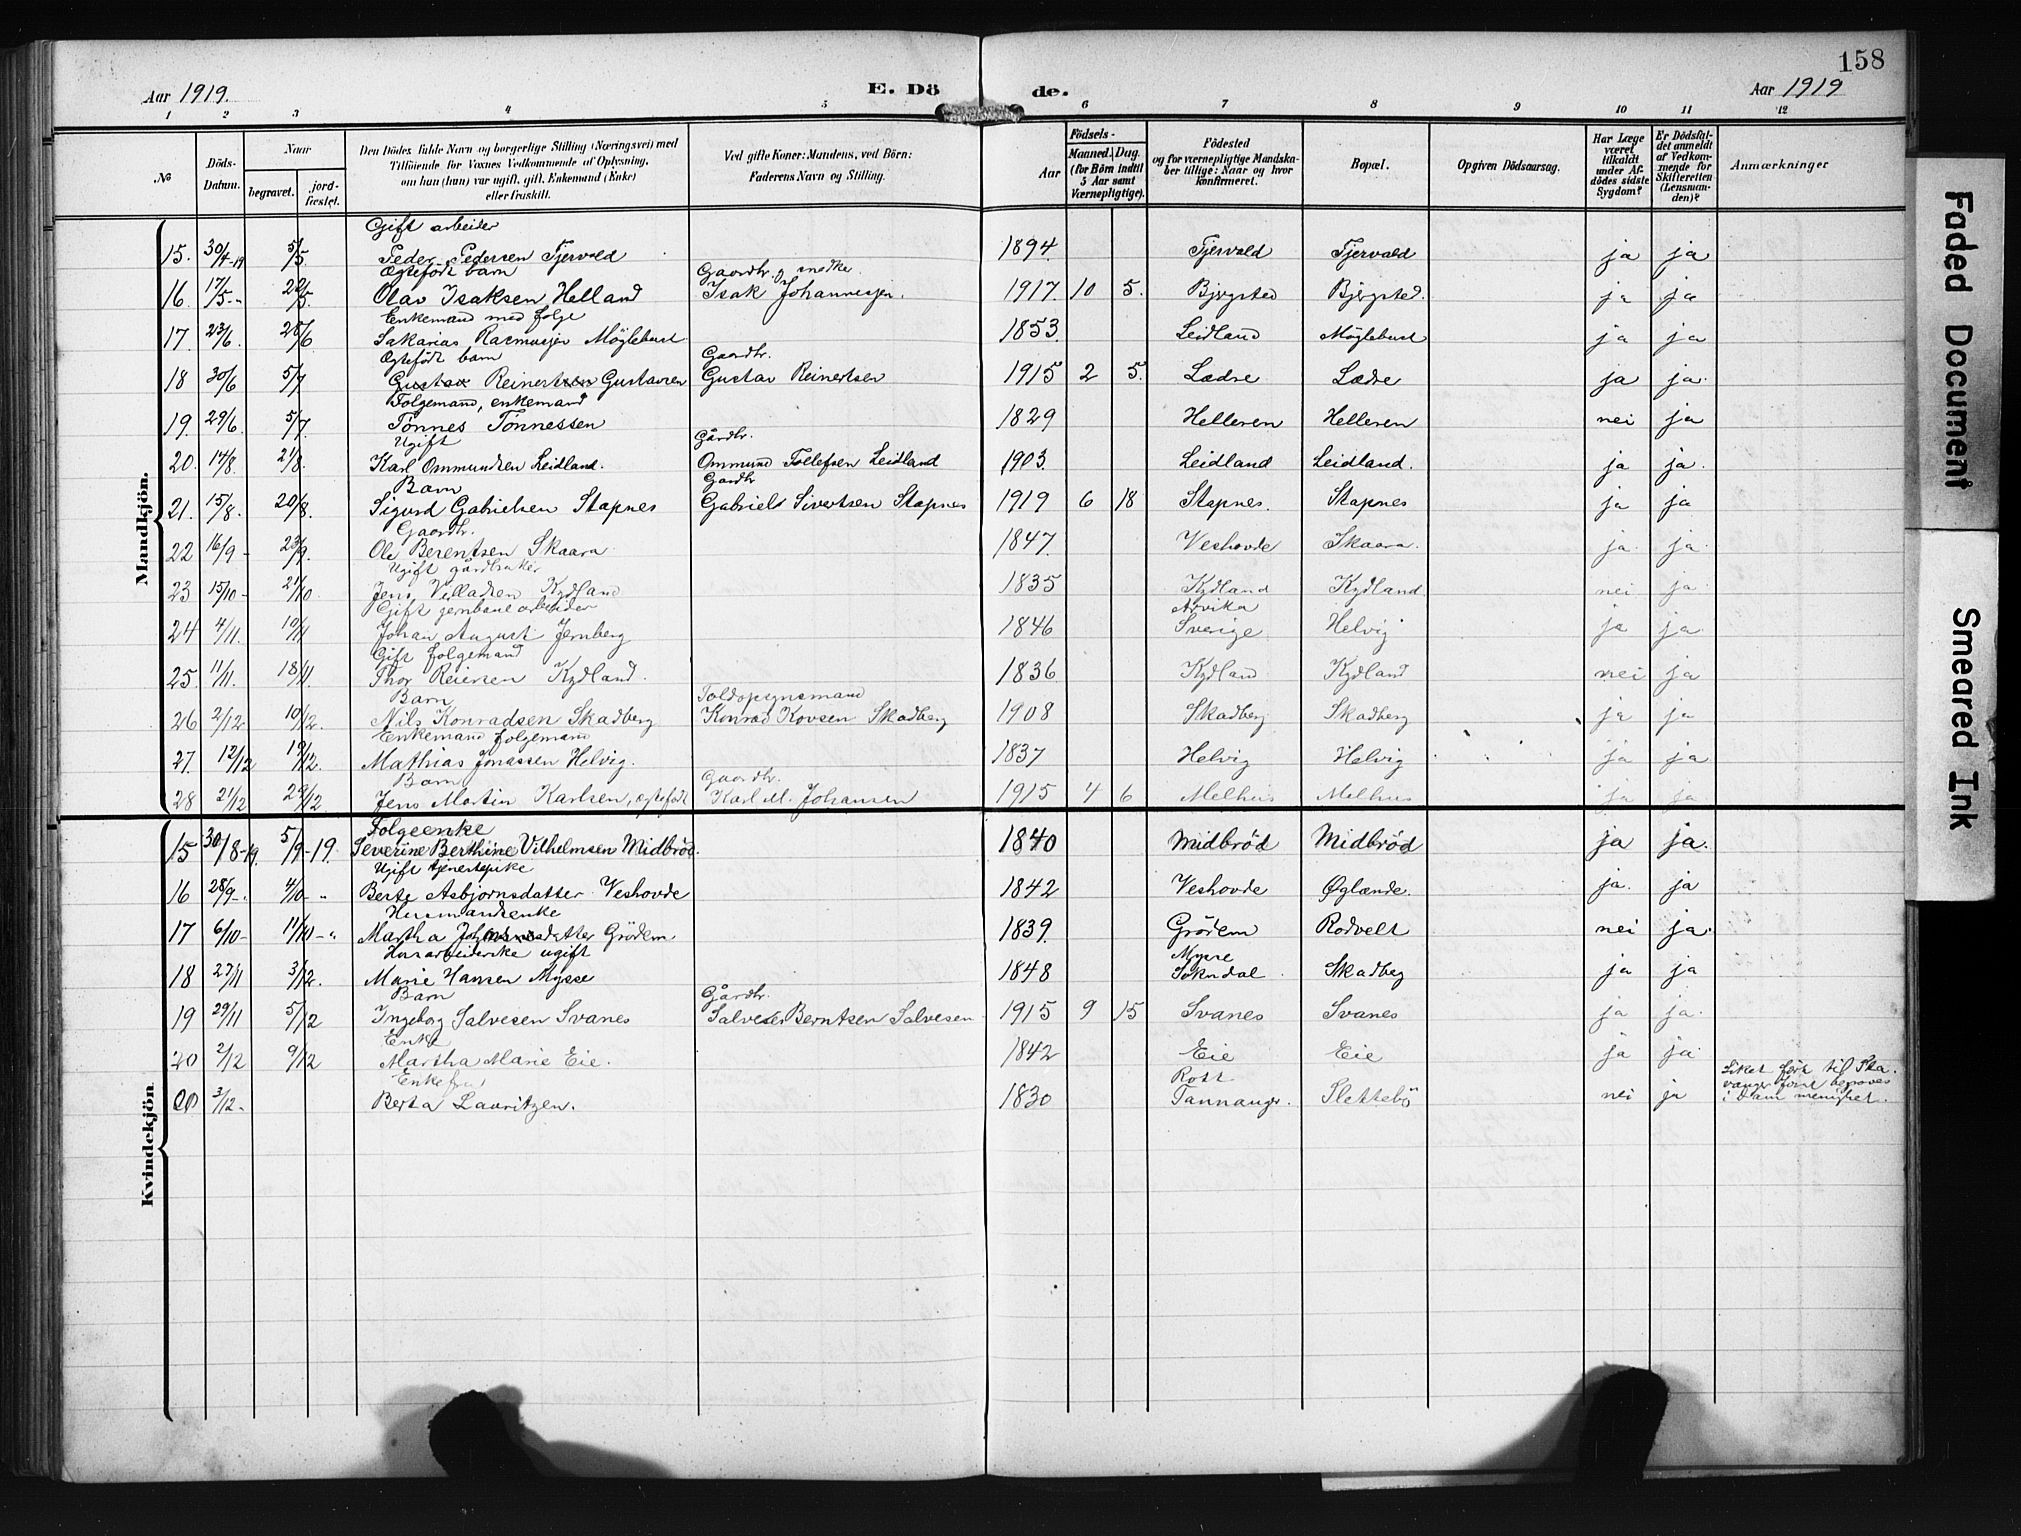 158
Aar 1919. E. Dö de. Aar 1919
1 2 3 4 5 6 7 8 9 10 11 12
No
Döds-Datum.
Naar
begravet. jord-fæstet.
Den Dödes fulde Navn og borgerlige Stilling (Næringsvei) med
Tilföiende for Voxnes Vedkommende af Oplysning,
om han (hun) var ugift, gift, Enkemand (Enke)
eller fraskilt.
Ved gifte Koner: Mandens, ved Börn:
Faderens Navn og Stilling.
Födsels-
Aar
Maaned. Dag.
(for Börn indtil
5 Aar samt
Værnepligtige).
Födested
og for værnepligtige Mandska-
ber tillige: Naar og hvor
konfirmeret.
Bopæl.
Opgiven Dödsaarsag.
Har Læge
været
tilkaldt
under Af-
dödes sidste
Sygdom?
Er Dödsfal-
det anmeldt
af Vedkom-
mende for
Skifteretten
(Lensman-
den)?
Anmærkninger
Mandkjön.
Gift arbeider
15. 30/4-19 5/5. Peder Pedersen Tjervold 1894. Tjervold Tjervold ja ja
Ægtefödt barn Gaardbr. og snedker
16 17/5-" 22/5. Olav Isaksen Helland Isak Johannesen. 1917. 10 5. Bjergsted Bjergsted. ja ja
Enkemand med folge
17. 23/6. 28/6 Sakarias Rasmussen Möglebust 1853. Leidland Möglebust ja ja
Ægtefödt barn Gaardbr.
18 30/6 5/7 Gustav Reinertsen Gustavsen Gustav Reinertsen 1915 2 5. Lædre Lædre ja ja.
Folgemand, enkemand
19. 29/6. 5/7. Tønnes Tønnessen 1829 Helleren Helleren nei ja
Ugift Gårdbr.
20. 14/8. 21/8. Karl Ommundsen Leidland. Ommund Tollefsen Leidland 1903. Leidland Leidland. ja ja.
Barn Gardbr
21. 15/8. 20/8. Sigurd Gabrielsen Stapnes Gabriels Sivertsen Stapnes 1919 6 18 Stapnes. Stapnes ja ja
Gaardbr.
22 16/9- 23/9. Ole Berentsen Skaara 1847. Veshovde Skaara. ja. ja.
Ugift gårdbruker
23 15/10- 21/10. Jens Villadsen Kydland 1835 Kydland Kydland nei ja.
Gift jernbanearbeider Arvika
24 4/11. 10/11 Johan August Jernberg 1846 Sverige Helvig ja ja.
Gift folgemand
25. 11/11. 18/11. Thor Reiersen Kydland. 1836 Kydland Kydland nei ja
Barn Toldopsynsmand
26 2/12 10/12. Nils Konradsen Skadberg Konrad Skadberg 1908 Skadberg Skadberg ja ja
Enkemand folgemand
27. 12/12 19/12. Mathias Jonassen Helvig. 1837 Helvig Helvig ja ja
Barn Gaardbr.
28 21/12 29/12 Jens Martin Karlsen, ægtefödt Karl M. Johansen 1915 4 6 Melhus Melhus ja ja
Kvindekjön
Folgeenke
15 30/8-19. 5/9-19. Severine Berthine Vilhelmsen Midbröd. 1840 Midbröd Midbröd ja ja.
Ugift tjenestepike
16 28/9-. 4/10-" Berte Asbjørnsdatter Veshovde 1842 Veshovde Øglænde. ja. ja
Husmandsenke
17 6/10- 11/10-" Martha datter Grödem 1839. Grödem Rodvelt nei ja.
Husarbeiderske ugift Mysse
18 27/11 3/12. Marie Hansen Mysse 1848 Sokndal Skadberg ja ja
Barn Gårdbr.
19 29/11 5/12 Ingeborg Salvesen Svanes Berntsen Salvesen 1915 9 15 Svanes Svanes ja ja.
Enke
20 2/12 9/12 Martha Marie Eie. 1842 Eie Eie ja ja
Enkefru Rott
3/12. Berta Lauritzen. 1830 Tannanger. Slettebö nei ja Liket fört til Sta-
vanger for at begraves
i menighet.
Faded Document
Smeared Ink